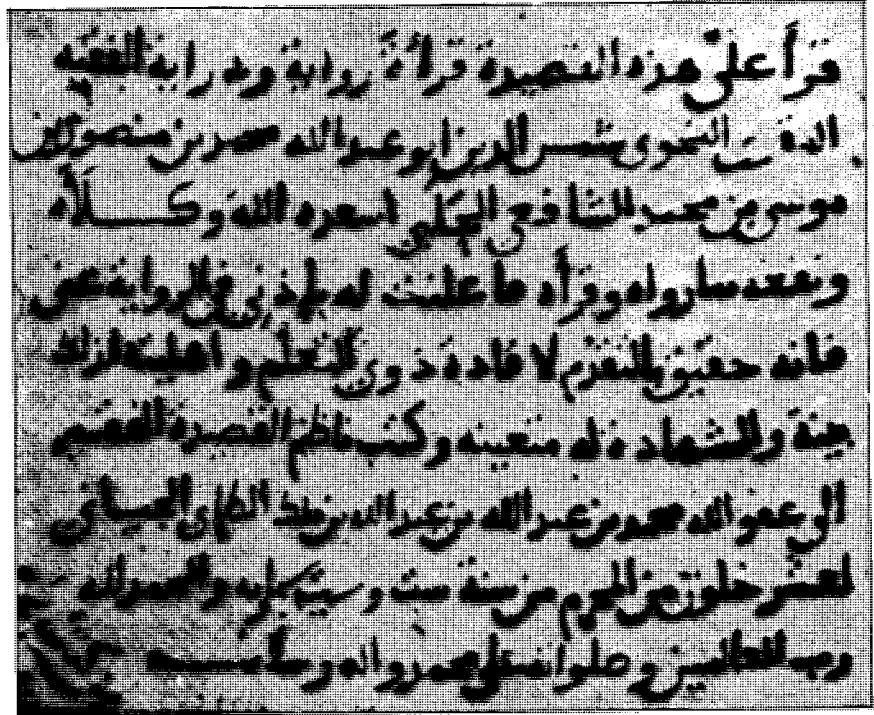 قرأ عليّ هذه القصيدة قراءة رواية ودراية الفقيه
النحوي شمس الدين ابو عبد الله محمد بن منصور بن
موسى بن محمد الشافعي الحلبي اسعده الله وكلأه
ونفعه بما رواه وقرأه ما علنت له باذني في الرواية عني
فانه حقيق بالتقدم لافادة ذوي التعلم واهليته لذلك
بينة والشهادة له متعينه وكتب ناظم القصيدة الفقير
الى عفو الله محمد بن عبد الله بن عبد الله بن مالك الطائي الجياني
لعشر خلون من المحرم من سنة ست وستين وستمايه والحمد لله
رب العالمين وصلواته على محمد واله وسلامـــه